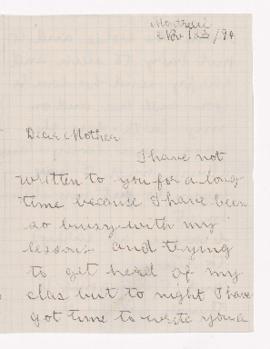 Montreal
Nov 23/94
Dear Mother
I have not
written to you for a long
time because I have been
so busy with my
lessons and trying
to get head of my
clas but to night I have
got time to write you a